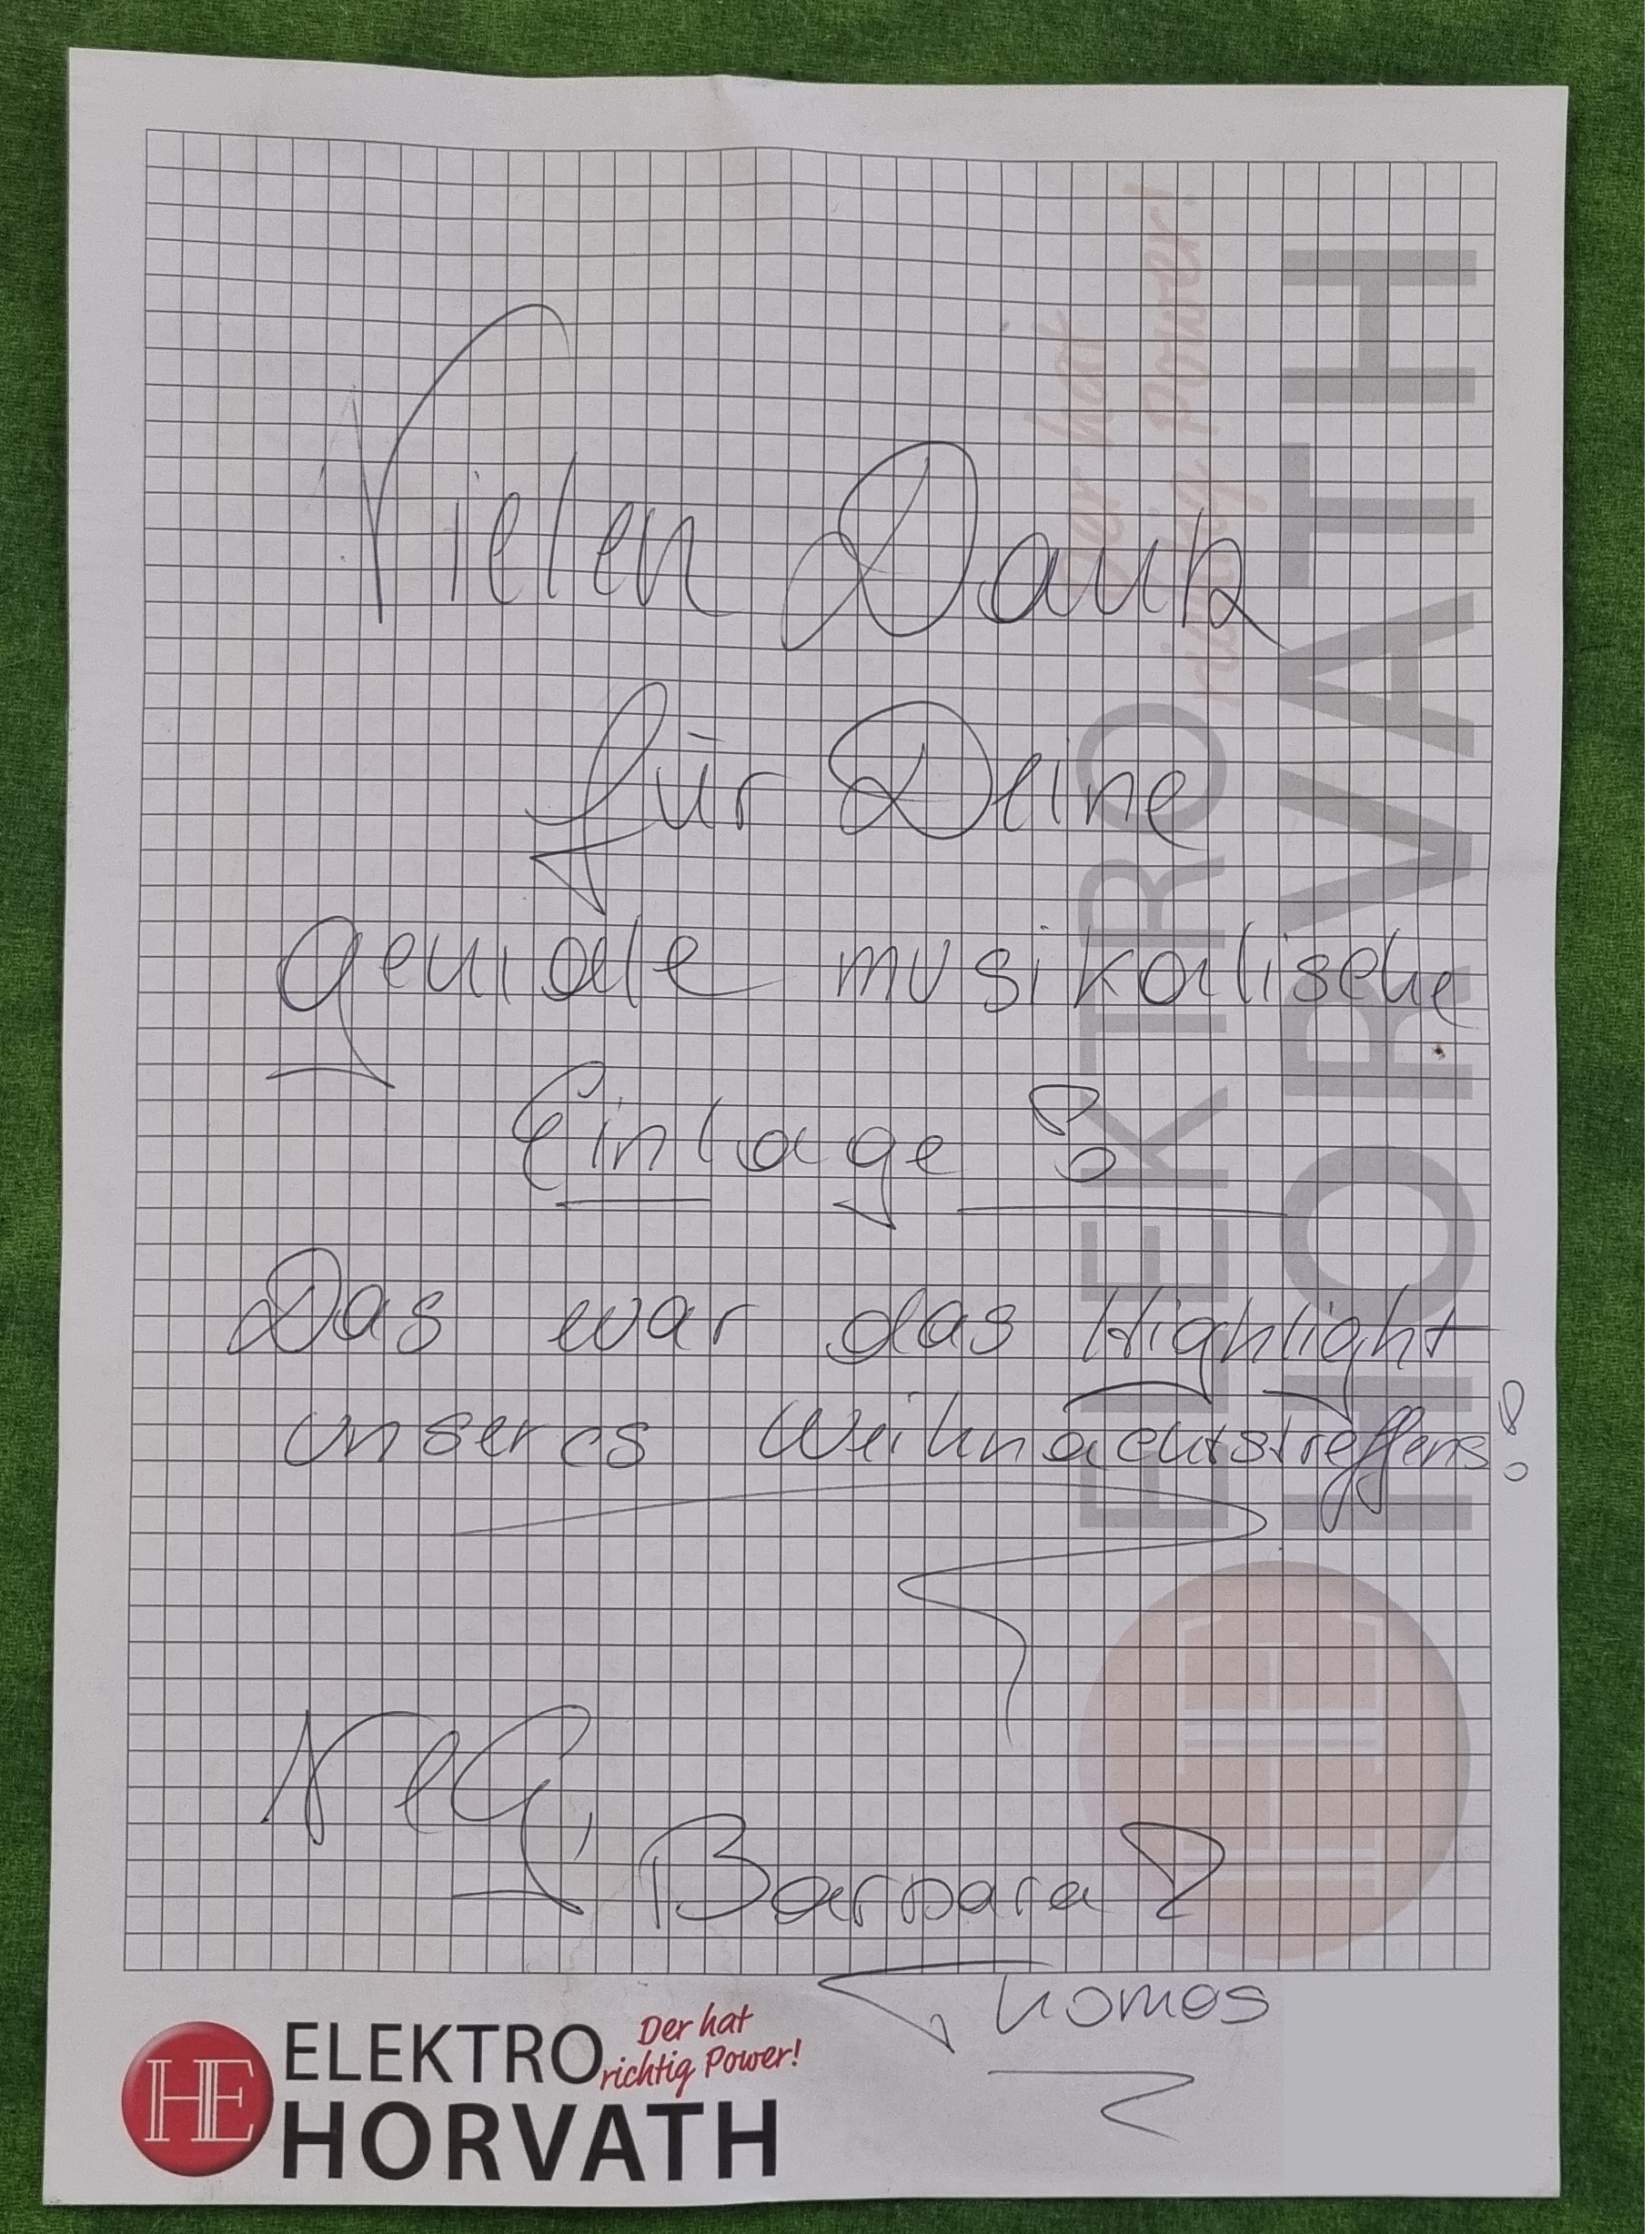 Vielen Dank
für Deine
geniale musikalische
Einlage!
Das war das Highlight
unseres Weihnachtstreffens!
Barbara &
Thomas
ELEKTRO
HORVATH
Der hat
richtig Power!
HE
ELEKTRO
HORVATH
Der hat
richtig Power!